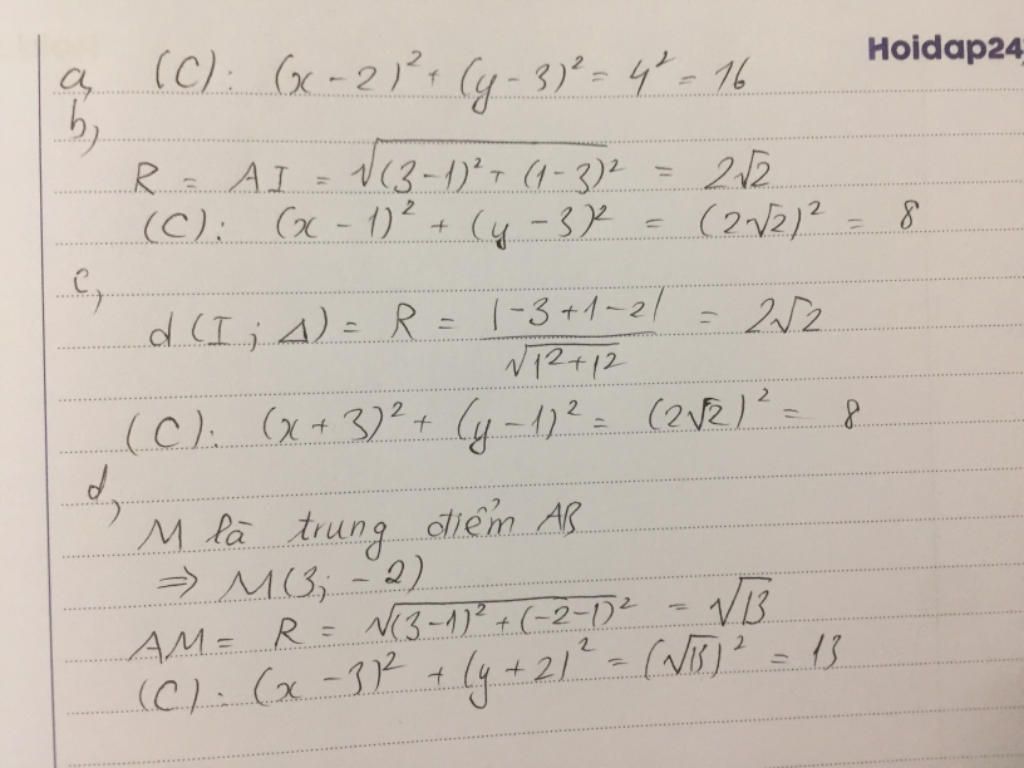 Hoidap24
a, (C): (x - 2)² + (y - 3)² = 4² = 16
b,
R = AI = √(3-1)² + (1-3)² = 2√2
(C): (x - 1)² + (y - 3)² = (2√2)² = 8
c,
d(I; Δ) = R = |-3+1-2| / √1²+1² = 2√2
(C): (x + 3)² + (y - 1)² = (2√2)² = 8
d,
M là trung điểm AB
⇒ M(3; -2)
AM = R = √(3-1)² + (-2-1)² = √13
(C): (x - 3)² + (y + 2)² = (√13)² = 13